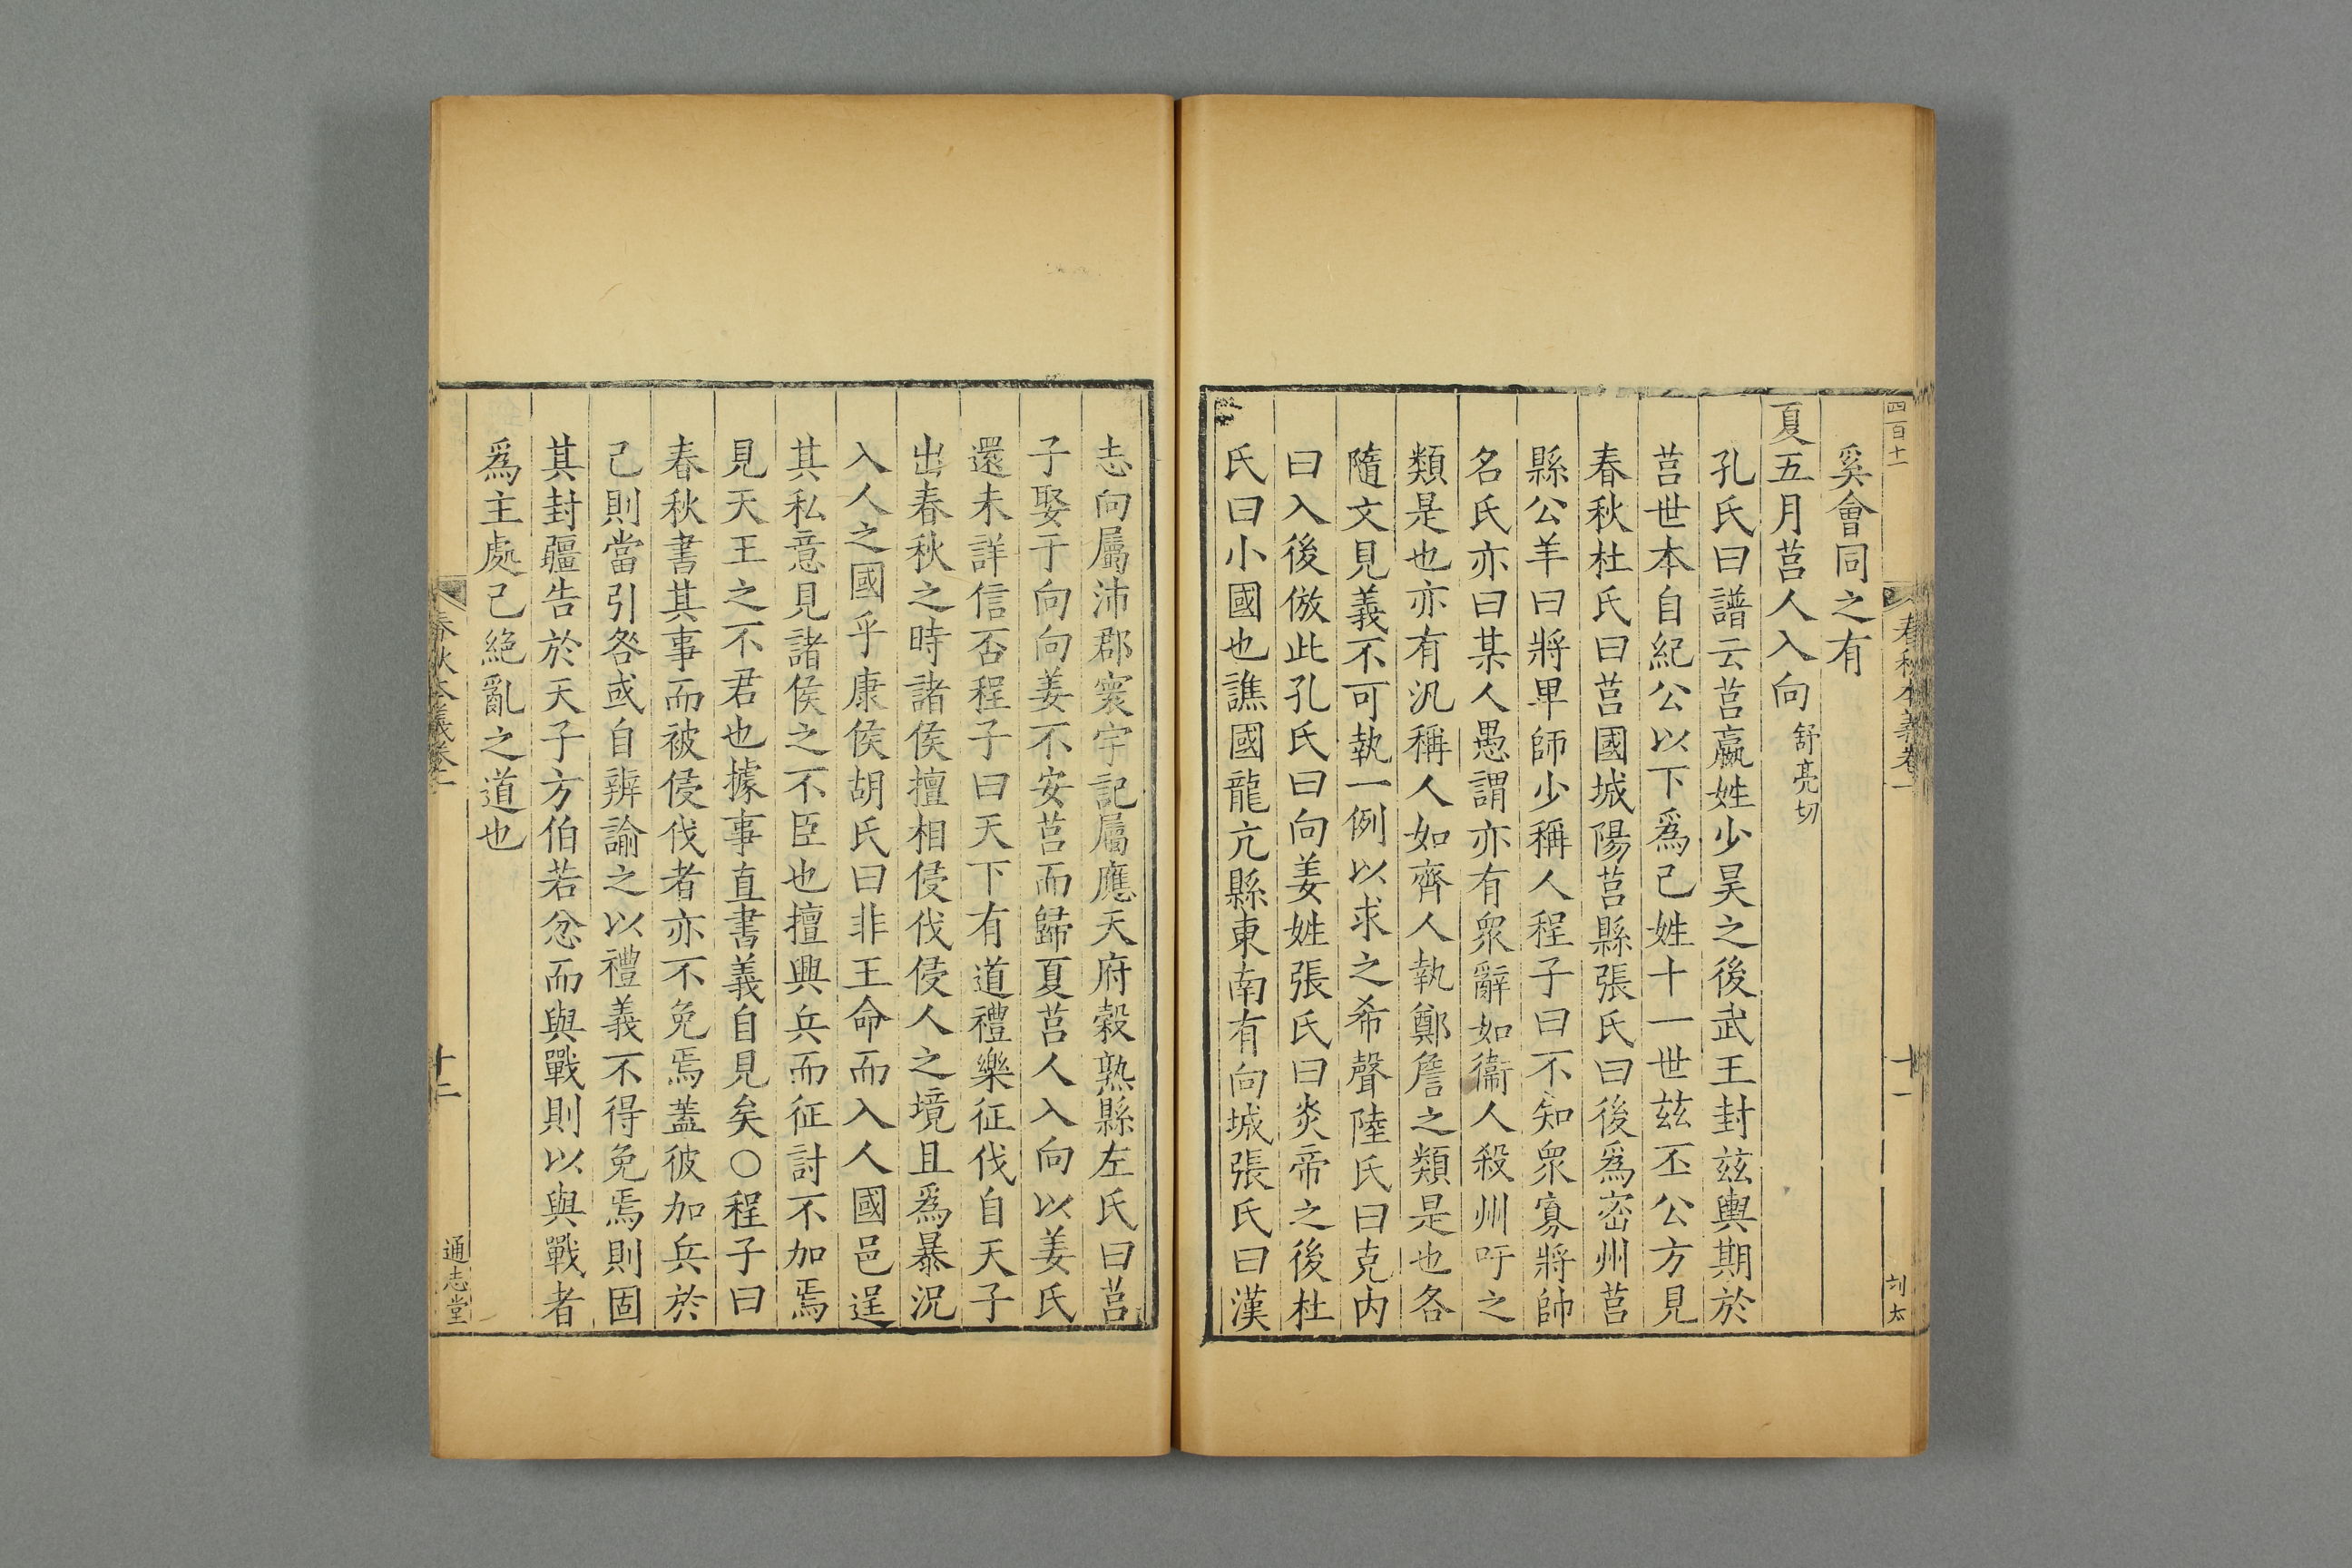 四百十一
春秋本義卷一
十一
刘太
奚會同之有
夏五月莒人入向舒亮切
孔氏曰譜云莒嬴姓少昊之後武王封兹輿期於
莒世本自紀公以下爲己姓十一世兹丕公方見
春秋杜氏曰莒國城陽莒縣張氏曰後爲密州莒
縣公羊曰將卑師少稱人程子曰不知衆寡將帥
名氏亦曰某人愚謂亦有衆辭如衞人殺州吁之
類是也亦有汎稱人如齊人執鄭詹之類是也各
隨文見義不可執一例以求之希聲陸氏曰克内
曰入後倣此孔氏曰向姜姓張氏曰炎帝之後杜
氏曰小國也譙國龍亢縣東南有向城張氏曰漢
志向屬沛郡寰宇記屬應天府穀熟縣左氏曰莒
子娶于向向姜不安莒而歸夏莒人入向以姜氏
還未詳信否程子曰天下有道禮樂征伐自天子
出春秋之時諸侯擅相侵伐侵人之境且爲暴況
入人之國乎康侯胡氏曰非王命而入人國邑逞
其私意見諸侯之不臣也擅興兵而征討不加焉
見天王之不君也據事直書義自見矣○程子曰
春秋書其事而被侵伐者亦不免焉蓋彼加兵於
己則當引咎或自辨諭之以禮義不得免焉則固
其封疆告於天子方伯若忿而與戰則以與戰者
爲主處己絶亂之道也
春秋本義卷一
十二
通志堂